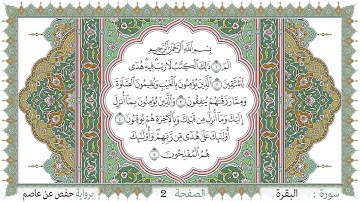 بِسْمِ اللَّهِ الرَّحْمَٰنِ الرَّحِيمِ
الٓمٓ ۝١ ذَٰلِكَ الْكِتَٰبُ لَا رَيْبَ ۛ فِيهِ ۛ هُدًى
لِّلْمُتَّقِينَ ۝٢ الَّذِينَ يُؤْمِنُونَ بِالْغَيْبِ وَيُقِيمُونَ الصَّلَوٰةَ
وَمِمَّا رَزَقْنَٰهُمْ يُنفِقُونَ ۝٣ وَالَّذِينَ يُؤْمِنُونَ بِمَا أُنزِلَ
إِلَيْكَ وَمَا أُنزِلَ مِن قَبْلِكَ وَبِالْءَاخِرَةِ هُمْ يُوقِنُونَ ۝٤
أُولَٰئِكَ عَلَىٰ هُدًى مِّن رَّبِّهِمْ ۖ وَأُولَٰئِكَ
هُمُ الْمُفْلِحُونَ ۝٥
سورة : البقرة الصفحة 2 برواية حفص عن عاصم